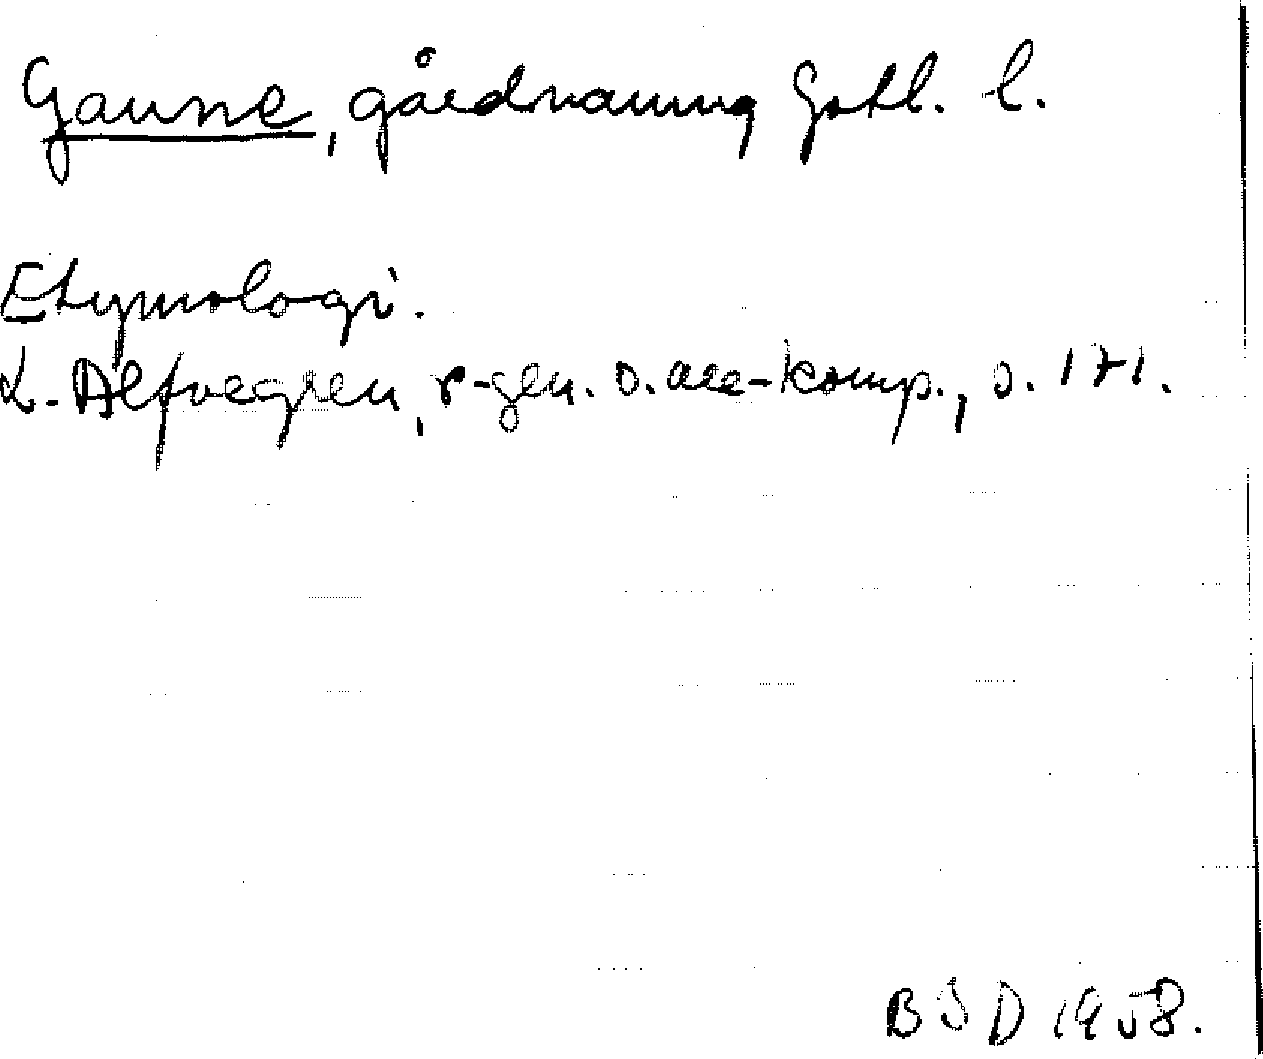 Gaune, gårdnamn Gotl. l.
Etymologi.
L. Alfvegren, r-gen. o. are-komp., s. 171.
BSD 1958.